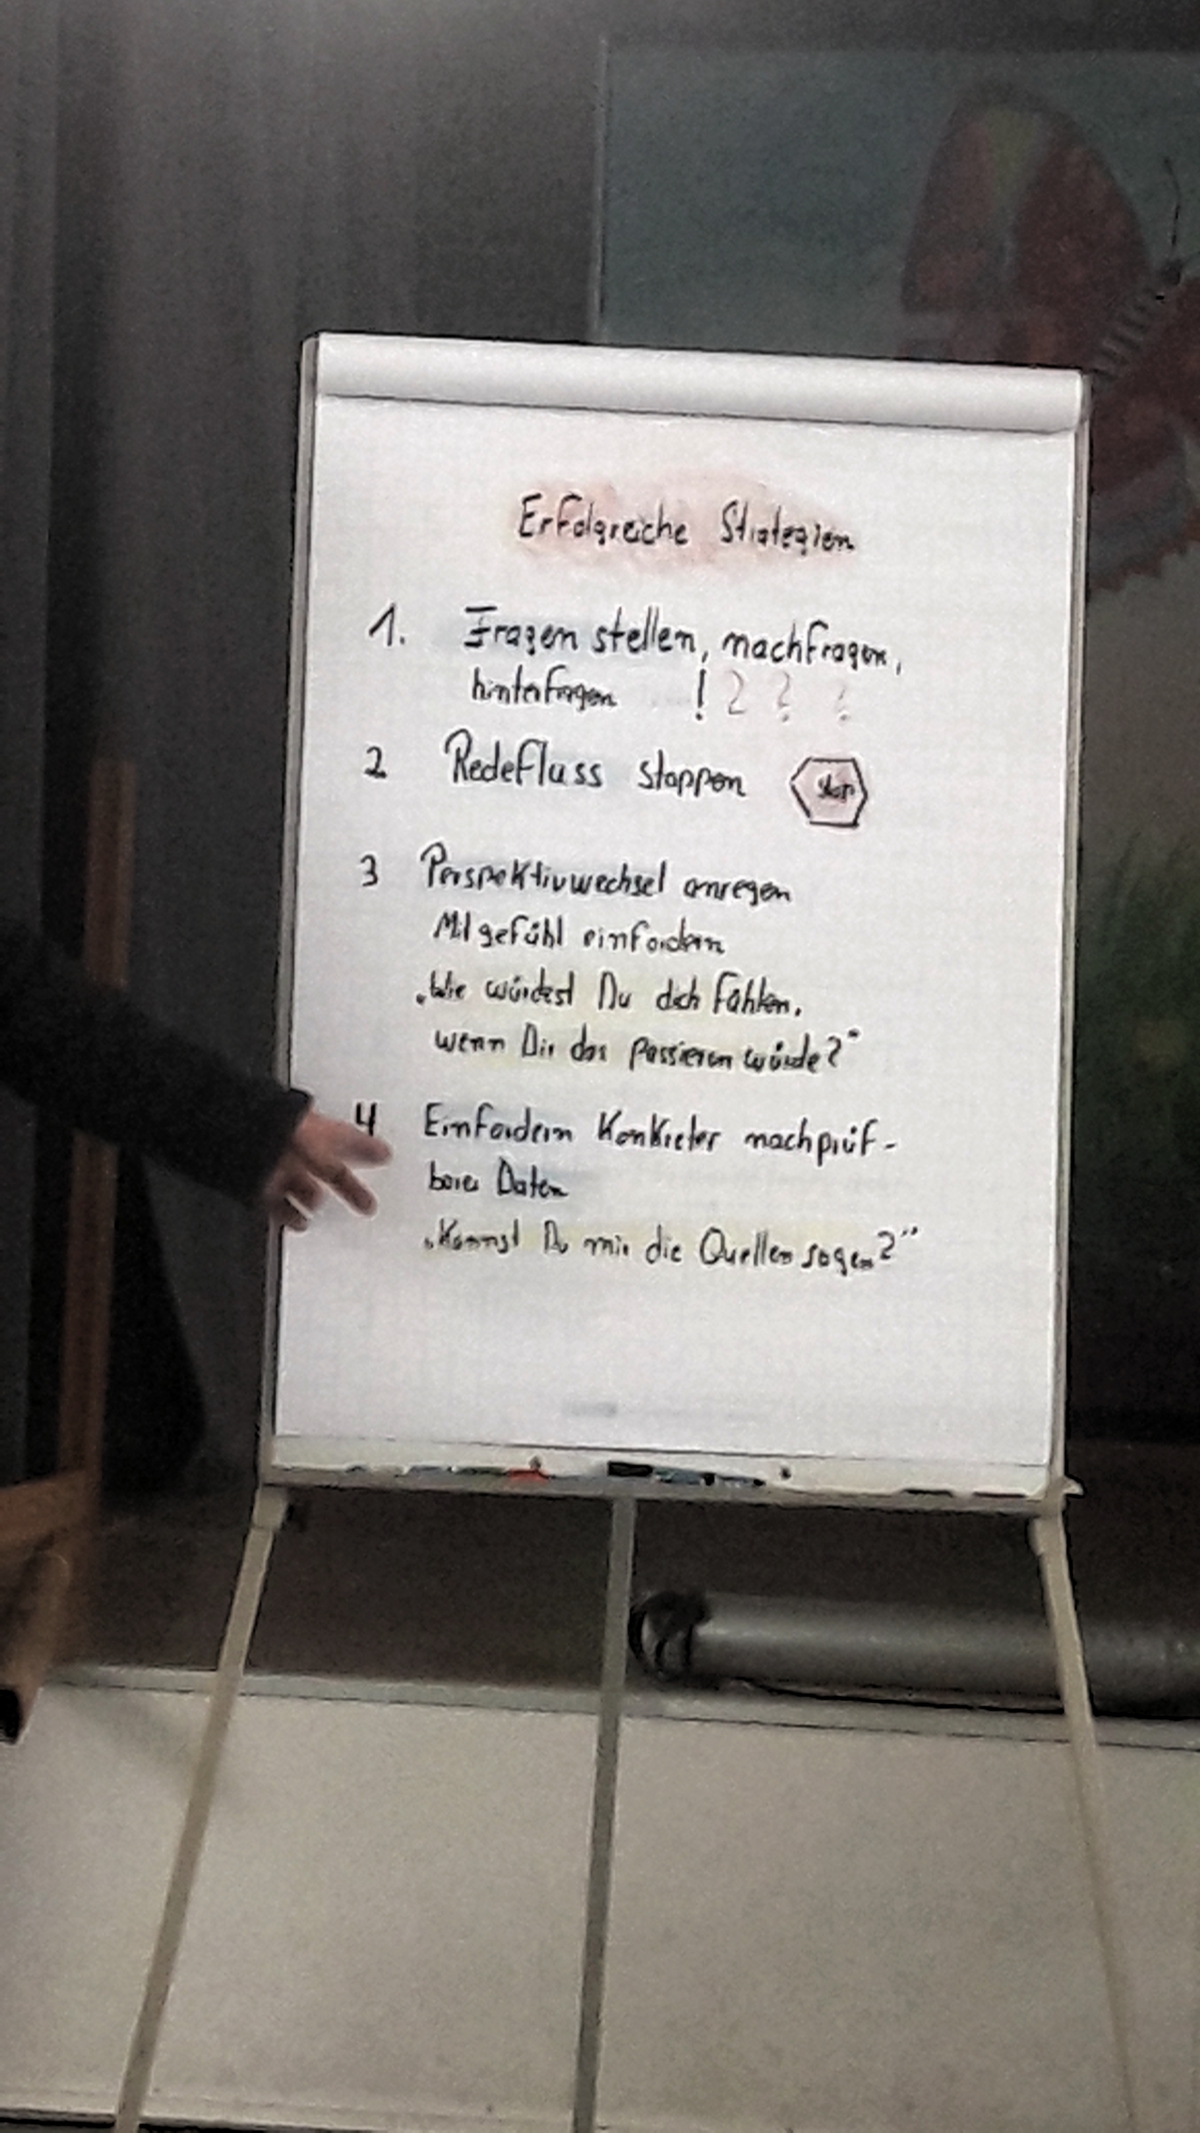 Erfolgreiche Strategien
1. Fragen stellen, nachfragen,
hinterfragen ! ? ? ?
2 Redefluss stoppen Stop
3 Perspektivwechsel anregen
Mitgefühl einfordern
„Wie würdest Du dich fühlen,
wenn Dir das passieren würde?“
4 Einfordern Konkreter nachprüf-
barer Daten
„Kannst Du mir die Quellen sagen?“